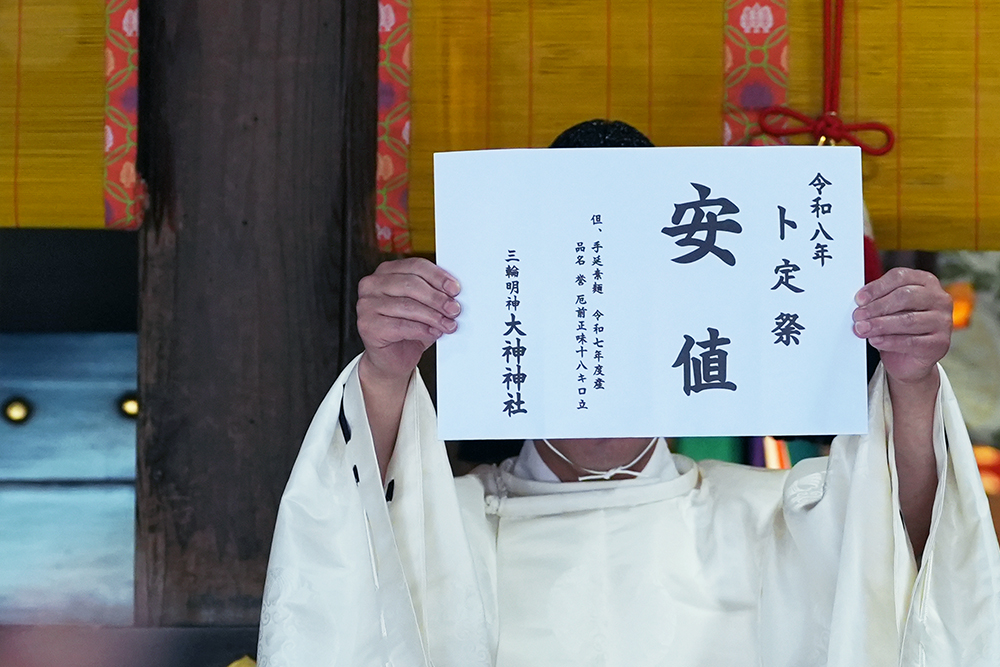 令和八年
卜定祭
安値
但、手延素麺 令和七年度産
品名 誉 厄前正味十八キロ立
三輪明神 大神神社